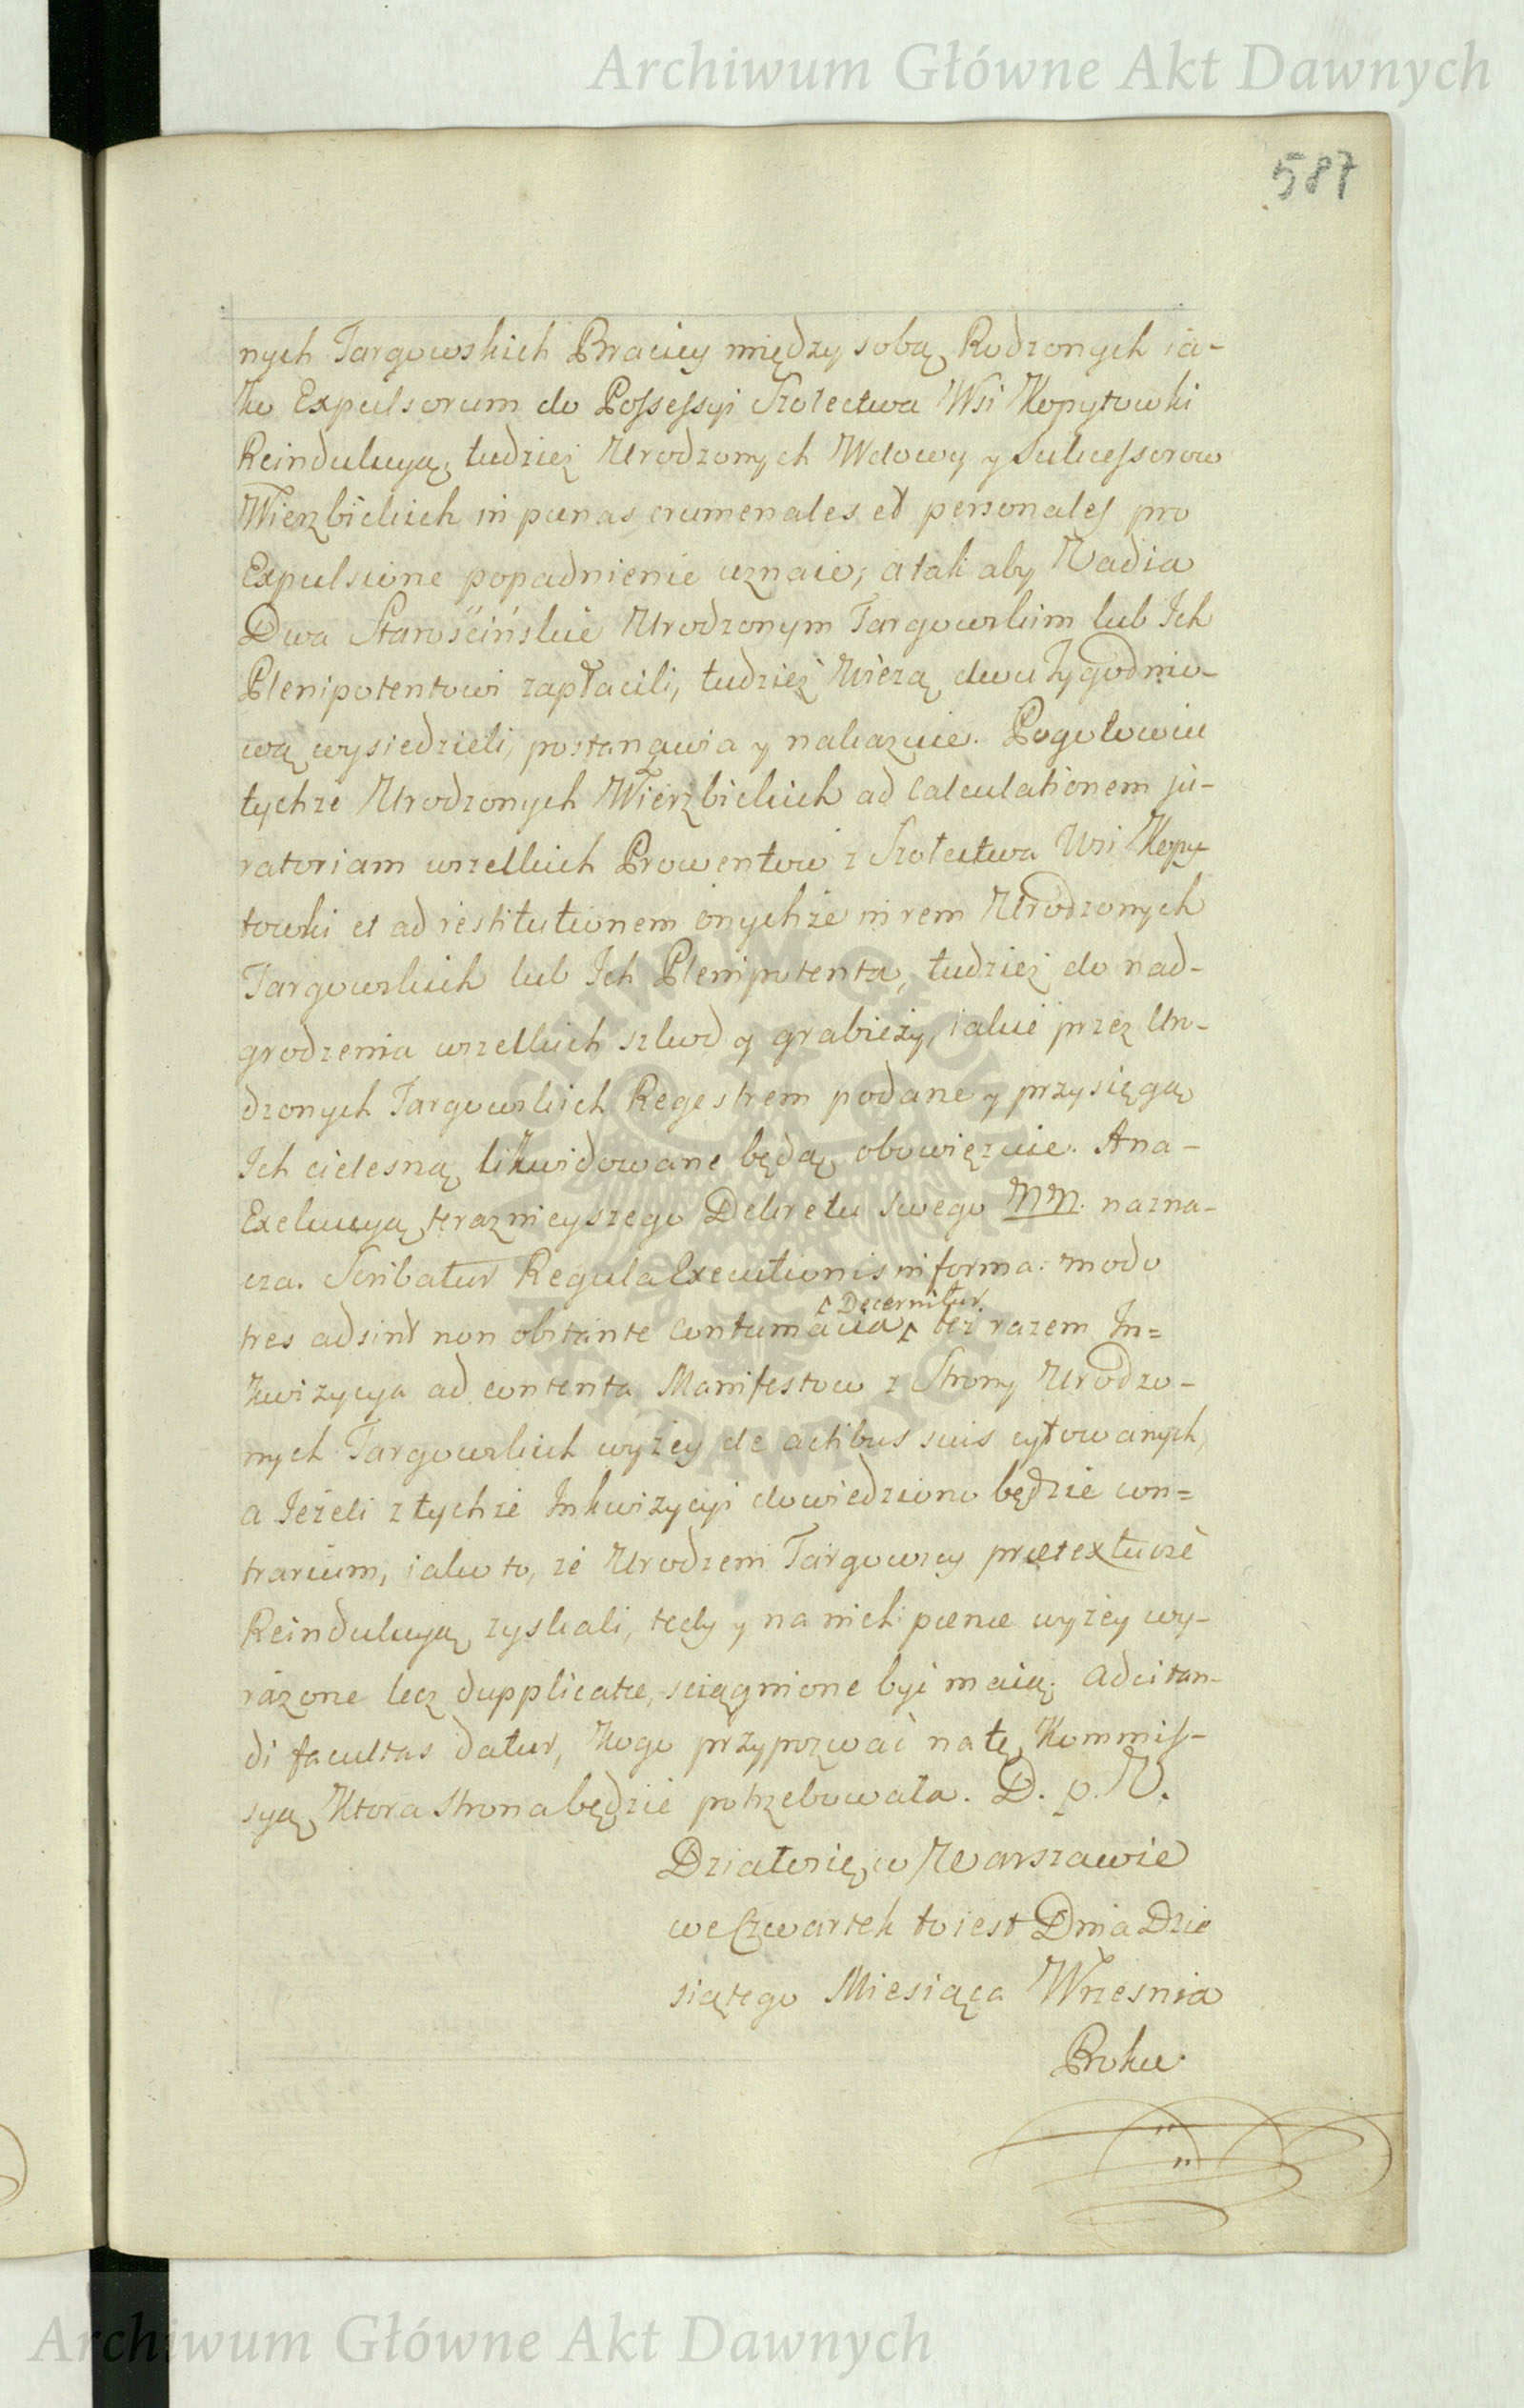 Archiwum Główne Akt Dawnych
587
nych Targowskich Braciey między sobą Rodzonych ia-
ko Expulsorum do Possessyi Szołectwa Wsi Kopytowki
Reindukcyą, tudzież Urodzonych Wdowy y Sukcessorow
Wierzbickich in pænas crumenales et personales pro
Expulsione popadnienie uznaie; a tak aby Vadia
Dwa Starościńskie Urodzonym Targowskim lub Ich
Plenipotentowi zapłacili, tudzież Wieżą dwu Tygodnio-
wą wysiedzieli, postanawia y nakazuie. Pogotowiu
tychże Urodzonych Wierzbickich ad Calculationem ju-
ratoriam wszelkich Prowentow z Szołectwa Wsi Kopy-
towki et ad restitutionem onychże in rem Urodzonych
Targowskich lub Ich Plenipotenta, tudzież do nad-
grodzenia wszelkich szkod y grabieży, iakie przez Uro-
dzonych Targowskich Regestrem podane y przysięgą
Ich cielesną likwidowane będą, obowięzuie. A na-
Exekucyą teraznieyszego Dekretu swego NN. nazna-
cza. Scribatur Regula Executionis in forma: modo
Decernitur
tres adsint non obstante Contumacia, też razem In=
kwizycya ad contenta Manifestow z Strony Urodzo-
nych Targowskich wyżey de actibus suis cytowanych,
a Jeżeli z tychże Inkwizycyi dowiedziono będzie con=
trarium, iako to, że Urodzeni Targowscy prætextuose
Reindukcyą zyskali, tedy y na nich pænæ wyżey wy-
rażone lecz dupplicatæ, sciągnione być maią; adcitan-
di facultas datur, kogo przypozwać na tę Kommis-
syą, Ktora Strona będzie potrzebowała. D. p. V.
Działo się w Warszawie
we Czwartek to iest Dnia Dzie
siątego Miesiąca Wrzesnia
Roku
ARCHIWUM GŁÓWNE
AKT DAWNYCH
Archiwum Główne Akt Dawnych